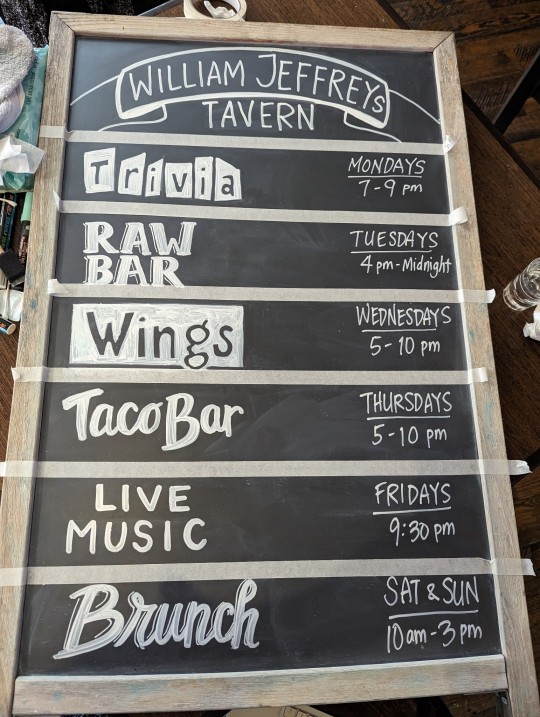 WILLIAM JEFFREYS
TAVERN
Trivia
MONDAYS
7-9 pm
RAW
BAR
TUESDAYS
4 pm - Midnight
Wings
WEDNESDAYS
5-10 pm
Taco Bar
THURSDAYS
5-10 pm
LIVE
MUSIC
FRIDAYS
9:30 pm
Brunch
SAT & SUN
10 am - 3 pm